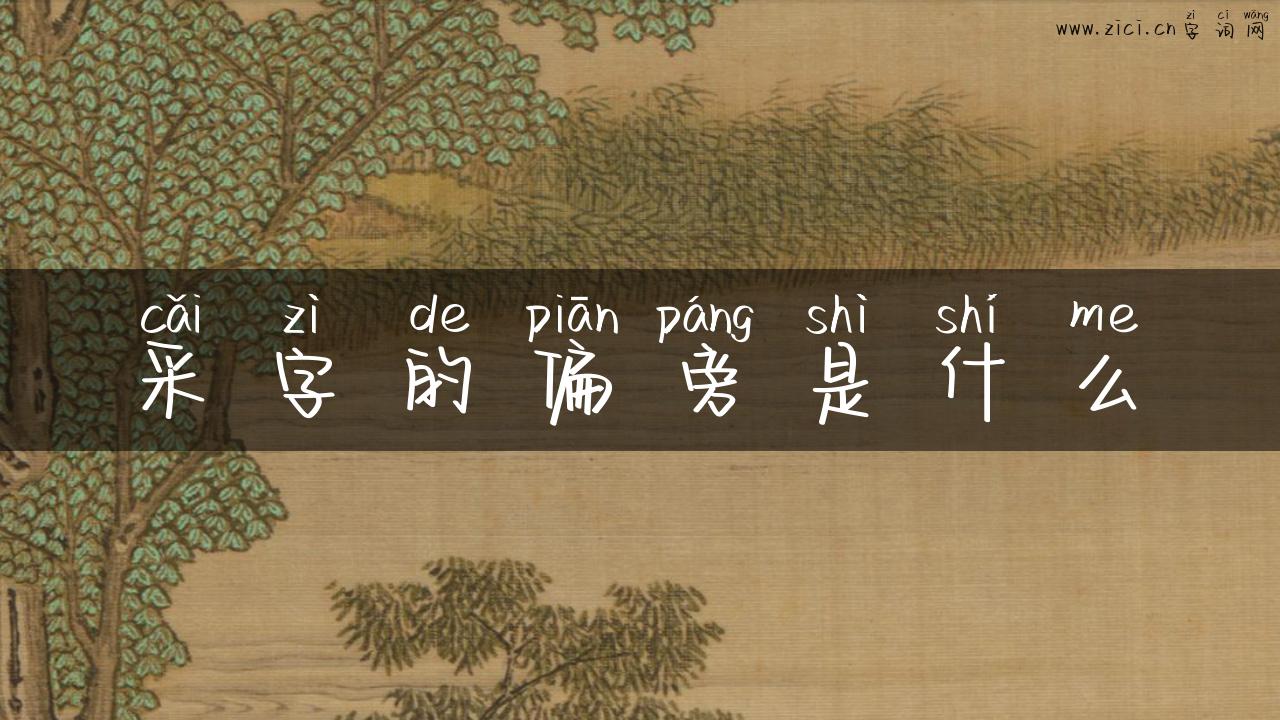 zì cí wǎng
www.zici.cn字词网
cǎi zì de piān páng shì shí me
采字的偏旁是什么